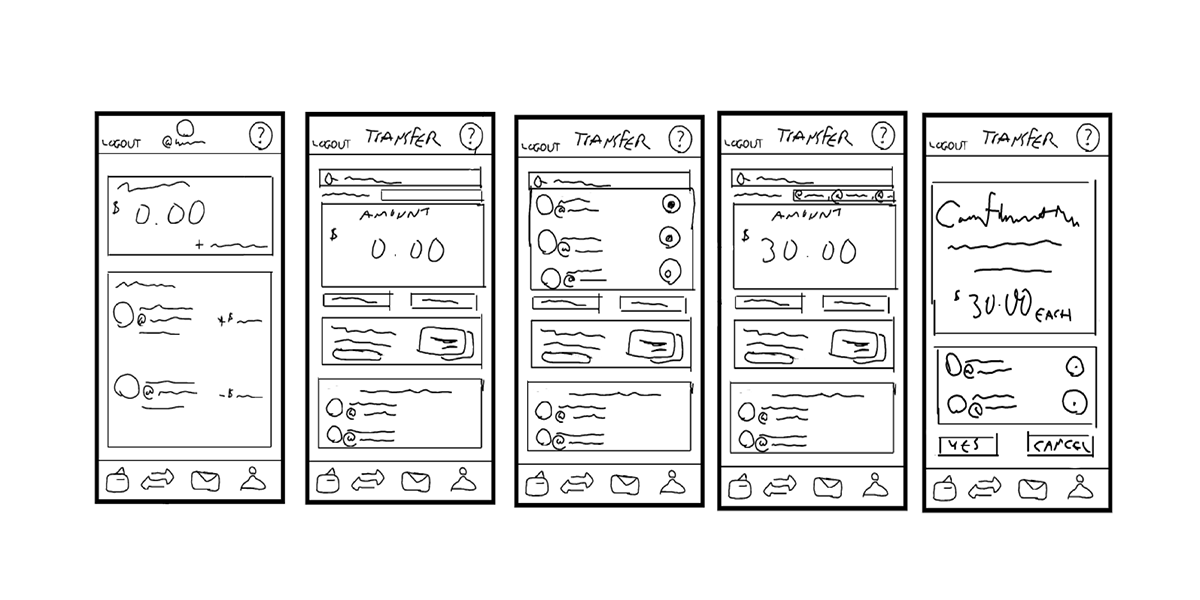 LOGOUT @ ?
$ 0.00
+
@ + $
@ - $
LOGOUT TRANSFER ?
AMOUNT
$ 0.00
@
@
LOGOUT TRANSFER ?
@
@
@
@
@
LOGOUT TRANSFER ?
@ , @ , @
AMOUNT
$ 30.00
@
@
LOGOUT TRANSFER ?
Confirmation
$ 30.00 EACH
@
@
YES CANCEL